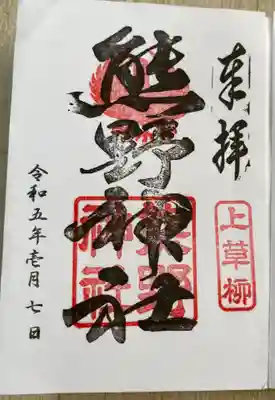 奉拝
上草柳
熊野神社
熊野神社
令和五年壱月七日